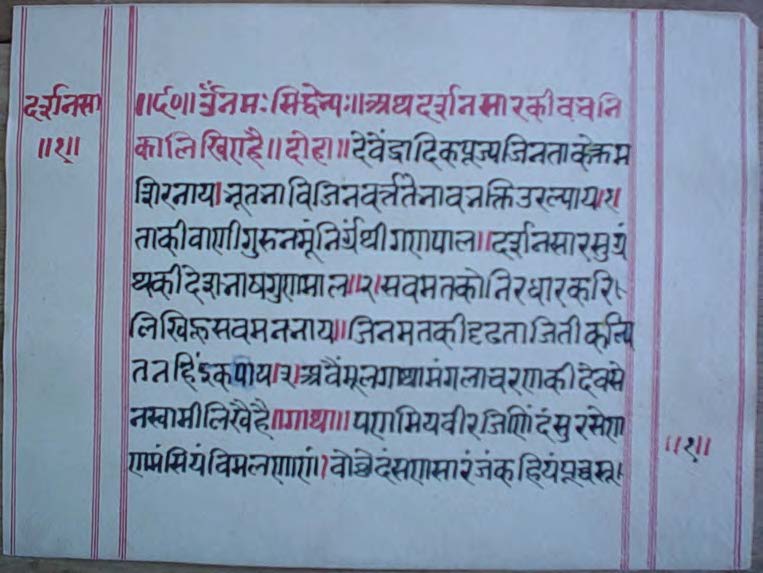 दर्शनसा
॥१॥
॥र्द०॥ र्उंनमः सिद्धेभ्यः॥ अथ दर्शनसारकी वचनि
का लिखिएहै॥ दोहा॥ देवेंद्रादिक पूज्य जिन ताके क्रम
शिरनाय। भूत भावि जिन वर्त्तते भाव भक्ति उर ल्याय।१।
ताकी वाणी गुरु नमूं निर्ग्रंथी गणपाल॥ दर्शनसार सुग्रं
थकी देश भाष गुणमाल॥२। सव मतको निरधार करि।
लिखिहूं सव मन भाय॥ जिनमतकी दृढता जिती कथि
त नहिं इक पाय।३। अवैं मूलगाथा मंगलाचरणकी देवसे
नस्वामी लिखैहै॥ गाथा॥ पणमिय वीरजिणिंदं सुरसेण
णमंसियं विमलणाणं। वोच्छे दंसणसारं जं कहियं पूव्वसू।
॥१॥